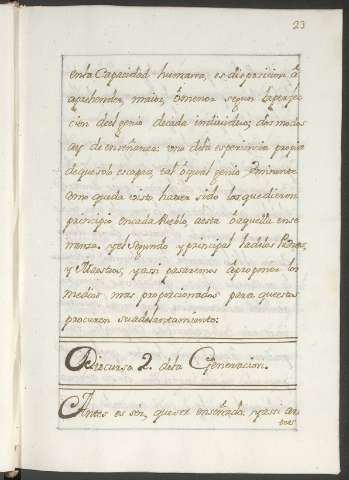 23
enla Capacidad humana, es disposicion á
aprehender, maior, ó menor segun la perfec
cion del genio de cada individuo; dos modos
ay de enseñanza: uno dela esperiencia propia
de que solo escapa, tal ó qual genio eminente
como queda visto haver sido los que dieron
principio en cada Pueblo, a esta ó aquella ense
ñanza. y el Segundo y principal la de los Padres,
y Maestros, y assi pasaremos á proponer los
medios mas proporcionados para que estos
procuren su adelantamiento:
Discurso 2. dela Generacion.
Antes es ser, que ser enseñado. y assi an